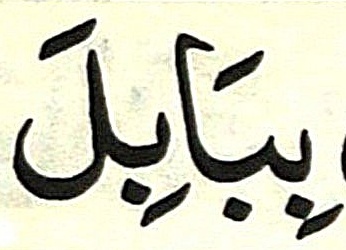 بِبَابِلَ